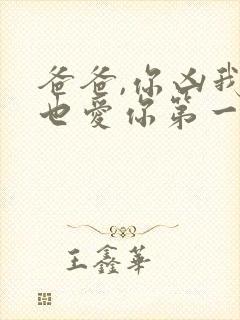 爸爸,你凶我
也爱你第一
王鑫华